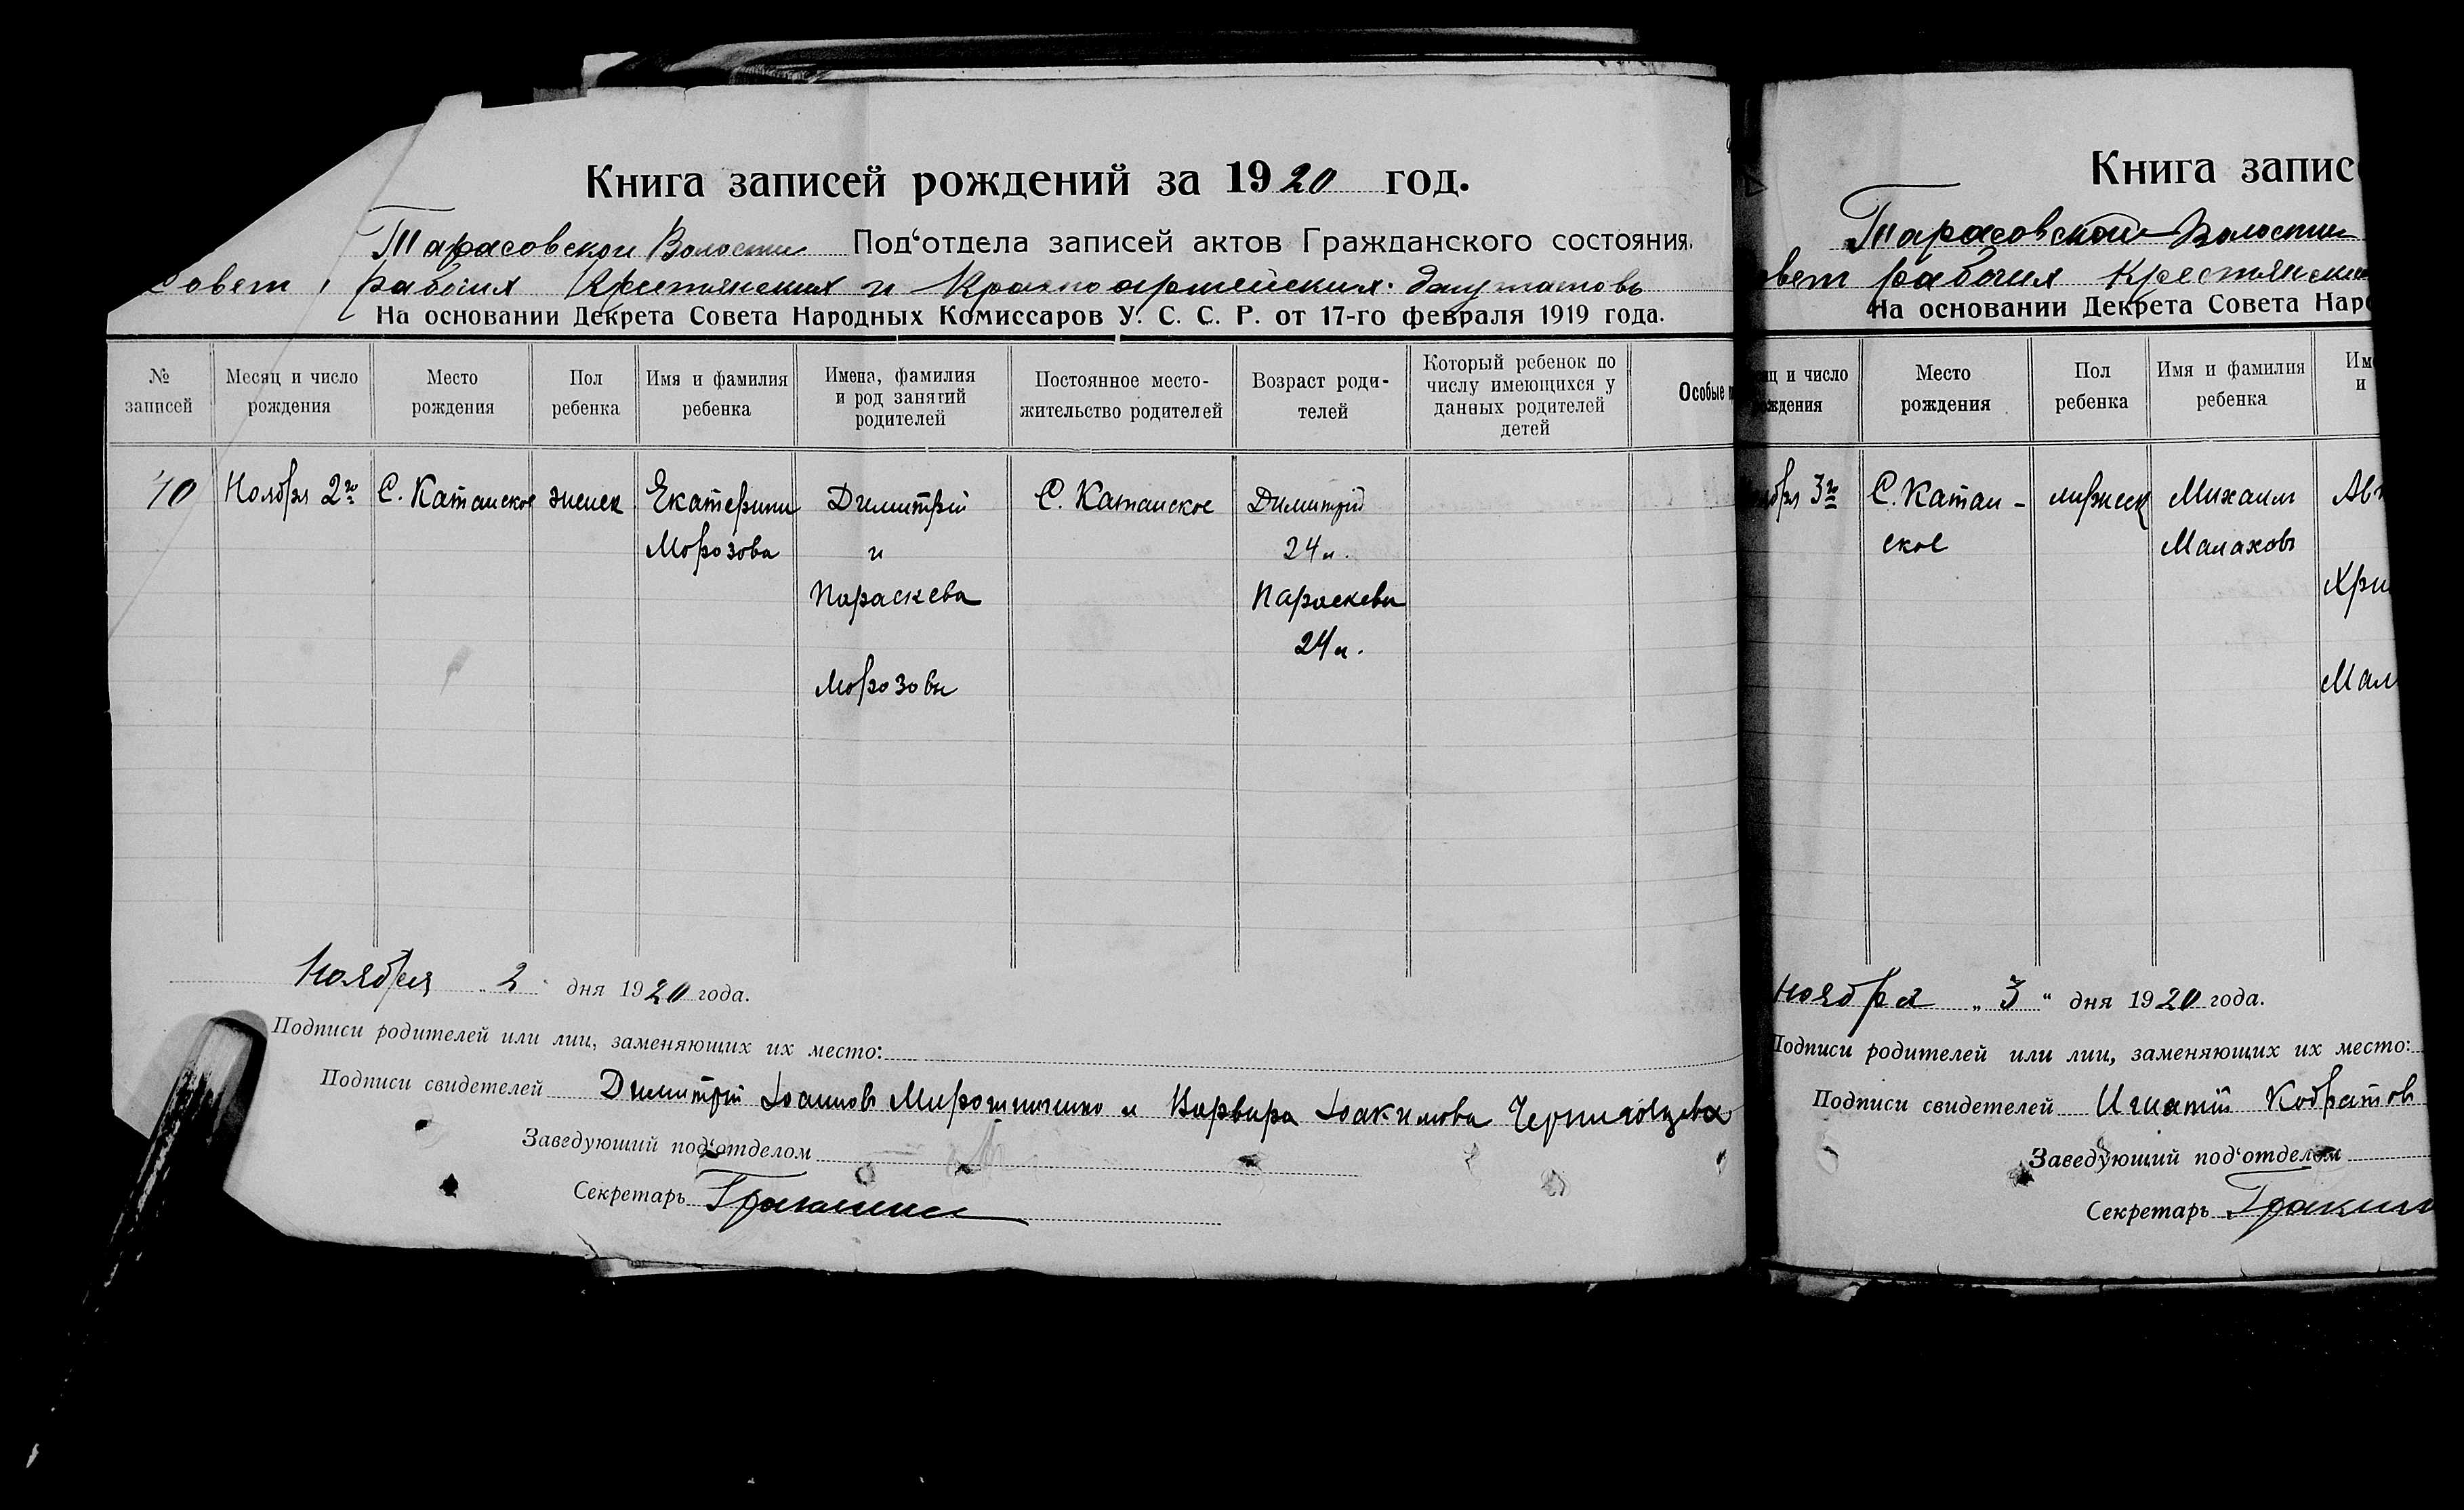 Книга записей рождений за 1920 год.
Тарасовской Волости Под‘отдела записей актов Гражданского состояния.
Совет рабочих Крестьянских и Красноармейских депутатовъ
На основании Декрета Совета Народных Комиссаров У. С. С. Р. от 17-го февраля 1919 года.
№ записей
Месяц и число рождения
Место рождения
Пол ребенка
Имя и фамилия ребенка
Имена, фамилия и род занятий родителей
Постоянное место-жительство родителей
Возраст роди-телей
Который ребенок по числу имеющихся у данных родителей детей
Особые
40 Ноября 2го С. Катанское женск Екатерина Димитрий С. Катанское Димитрий
Морозова и 24 л.
Параскева Параскева
24 л.
Морозовы
Ноября „ 2 “ дня 1920 года.
Подписи родителей или лиц, заменяющих их место:
Подписи свидетелей Димитрій Іоанновъ Мирошниченко и Варвара Іоакимова Черниговцева
Заведующий под‘отделом
Секретарь
Книга запис
Тарасовской Волости
овет рабочих Крестьянских
На основании Декрета Совета Наро
яц и число рождения
Место рождения
Пол ребенка
Имя и фамилия ребенка
Име
и
ября 3го С. Катан- мужеск Михаил Ав
ское Малаховъ
Хри
Мал
Ноября „ 3 “ дня 1920 года.
Подписи родителей или лиц, заменяющих их место:
Подписи свидетелей Игнатій Кодратов
Заведующий под‘отделом
Секретарь